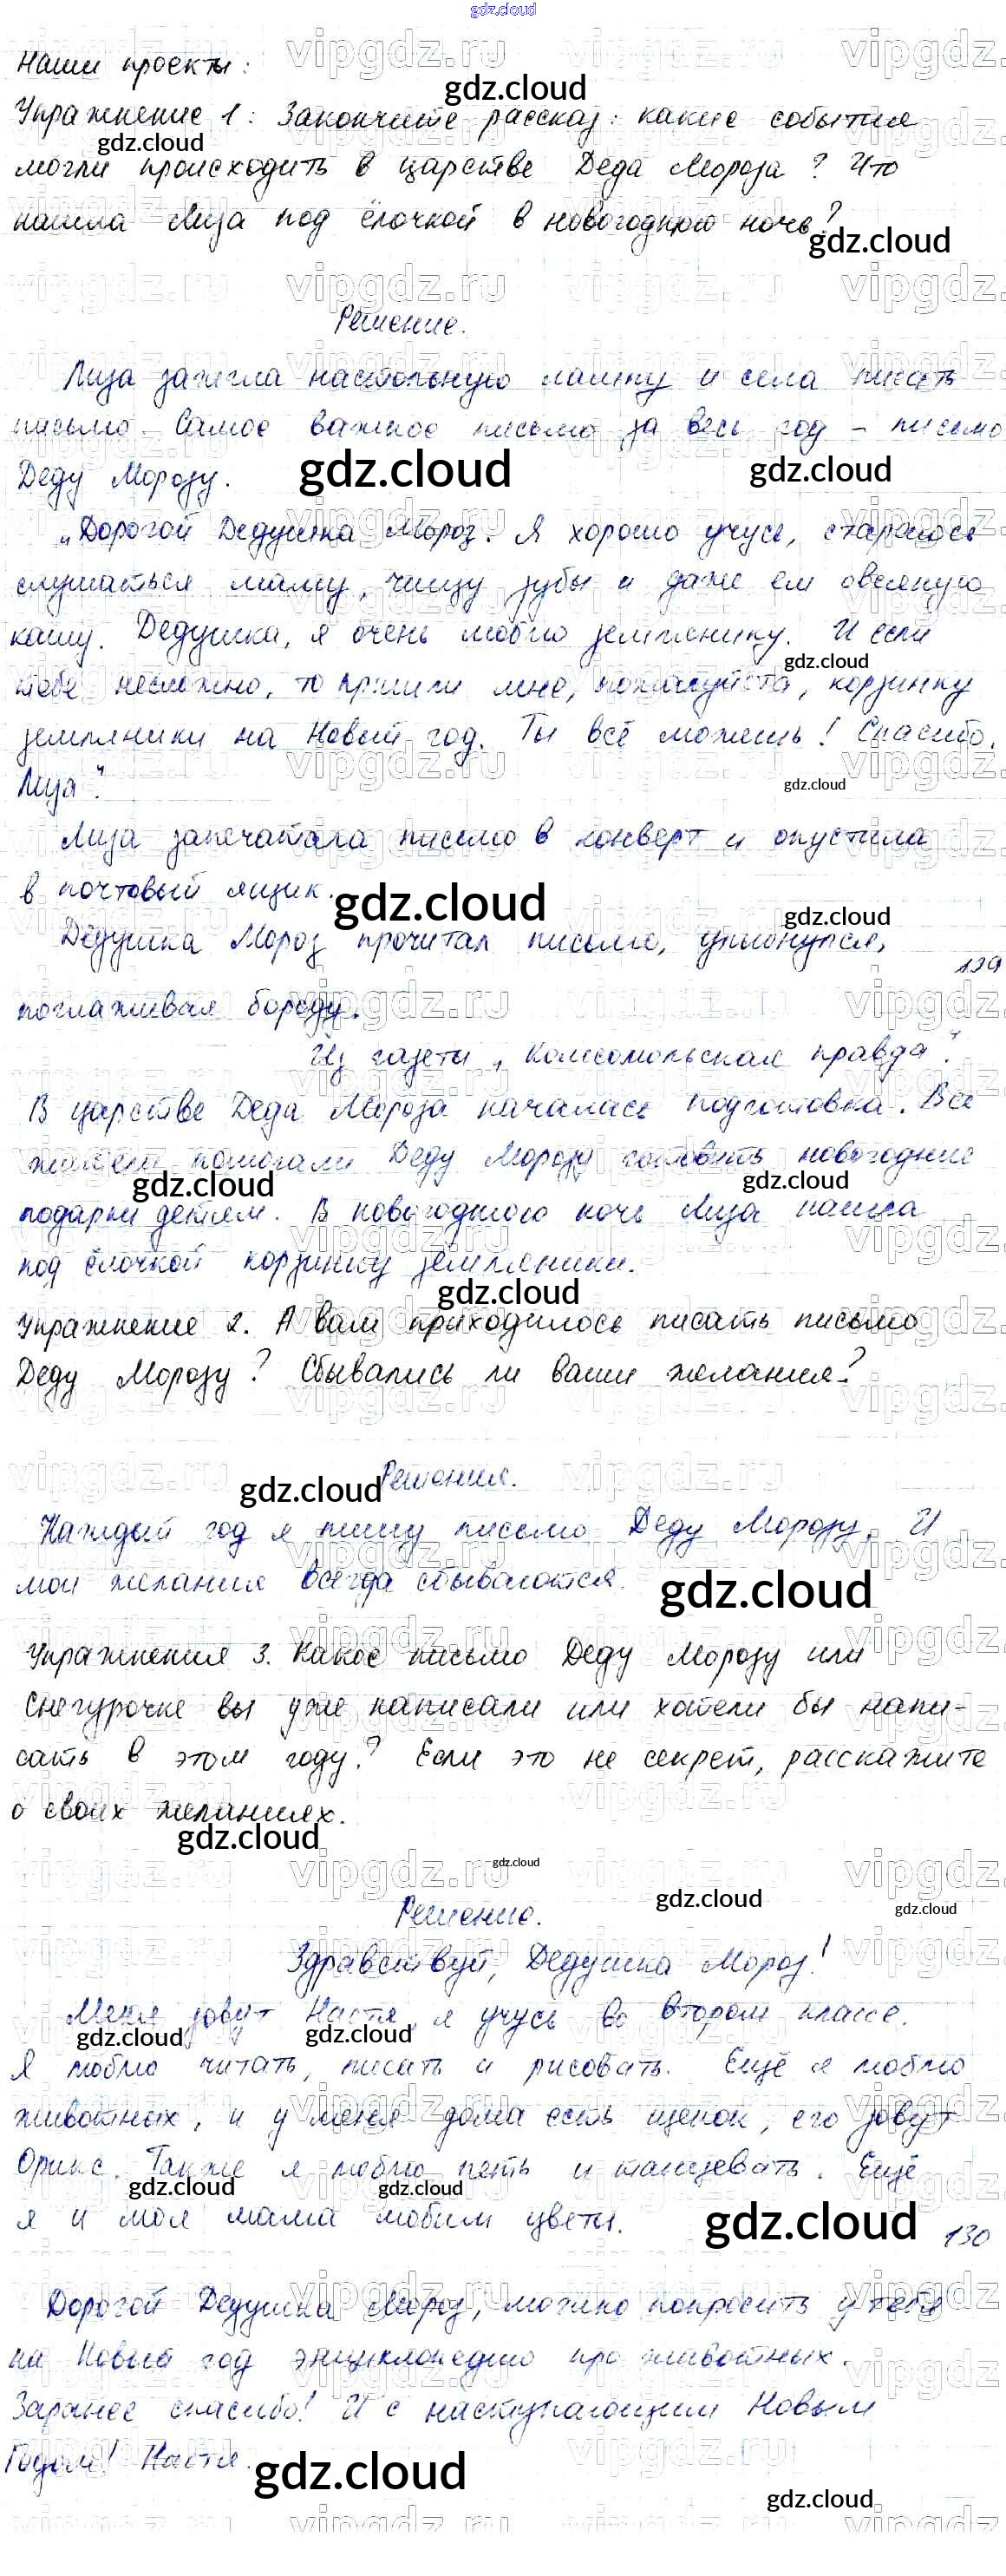 gdz.cloud
Наши проекты:
Упражнение 1: Закончите рассказ: какие события
могли происходить в царстве Деда Мороза? Что
нашла Лиза под ёлочкой в новогоднюю ночь?
Решение.
Лиза зажгла настольную лампу и села писать
письмо. Самое важное письмо за весь год - письмо
Деду Морозу.
„Дорогой Дедушка Мороз. Я хорошо учусь, стараюсь
слушаться маму, чищу зубы и даже ем овсяную
кашу. Дедушка, я очень люблю землянику. И если
тебе несложно, то пришли мне, пожалуйста, корзинку
земляники на Новый год. Ты всё можешь! Спасибо.
Лиза".
Лиза запечатала письмо в конверт и опустила
в почтовый ящик.
Дедушка Мороз прочитал письмо, улыбнулся,
129
поглаживая бороду.
Из газеты „Комсомольская правда".
В царстве Деда Мороза началась подготовка. Все
помогали Деду Морозу готовить новогодние
подарки детям. В новогоднюю ночь Лиза нашла
под ёлочкой корзинку земляники.
Упражнение 2. А вам приходилось писать письмо
Деду Морозу? Сбывались ли ваши желания?
Решения.
Каждый год я пишу письмо Деду Морозу. И
мои желания всегда сбываются.
Упражнения 3. Какое письмо Деду Морозу или
Снегурочке вы уже написали или хотели бы напи-
сать в этом году? Если это не секрет, расскажите
о своих желаниях.
Решение.
Здравствуй, Дедушка Мороз!
Меня зовут Настя, я учусь во втором классе.
Я люблю читать, писать и рисовать. Ещё я люблю
животных, и у меня дома есть щенок, его зовут
Также я люблю петь и танцевать. Ещё
я и моя мама любим цветы.
130
Дорогой Дедушка Мороз, можно попросить у тебя
на Новый год энциклопедию про животных.
Заранее спасибо! И с наступающим Новым
Годом! Настя.